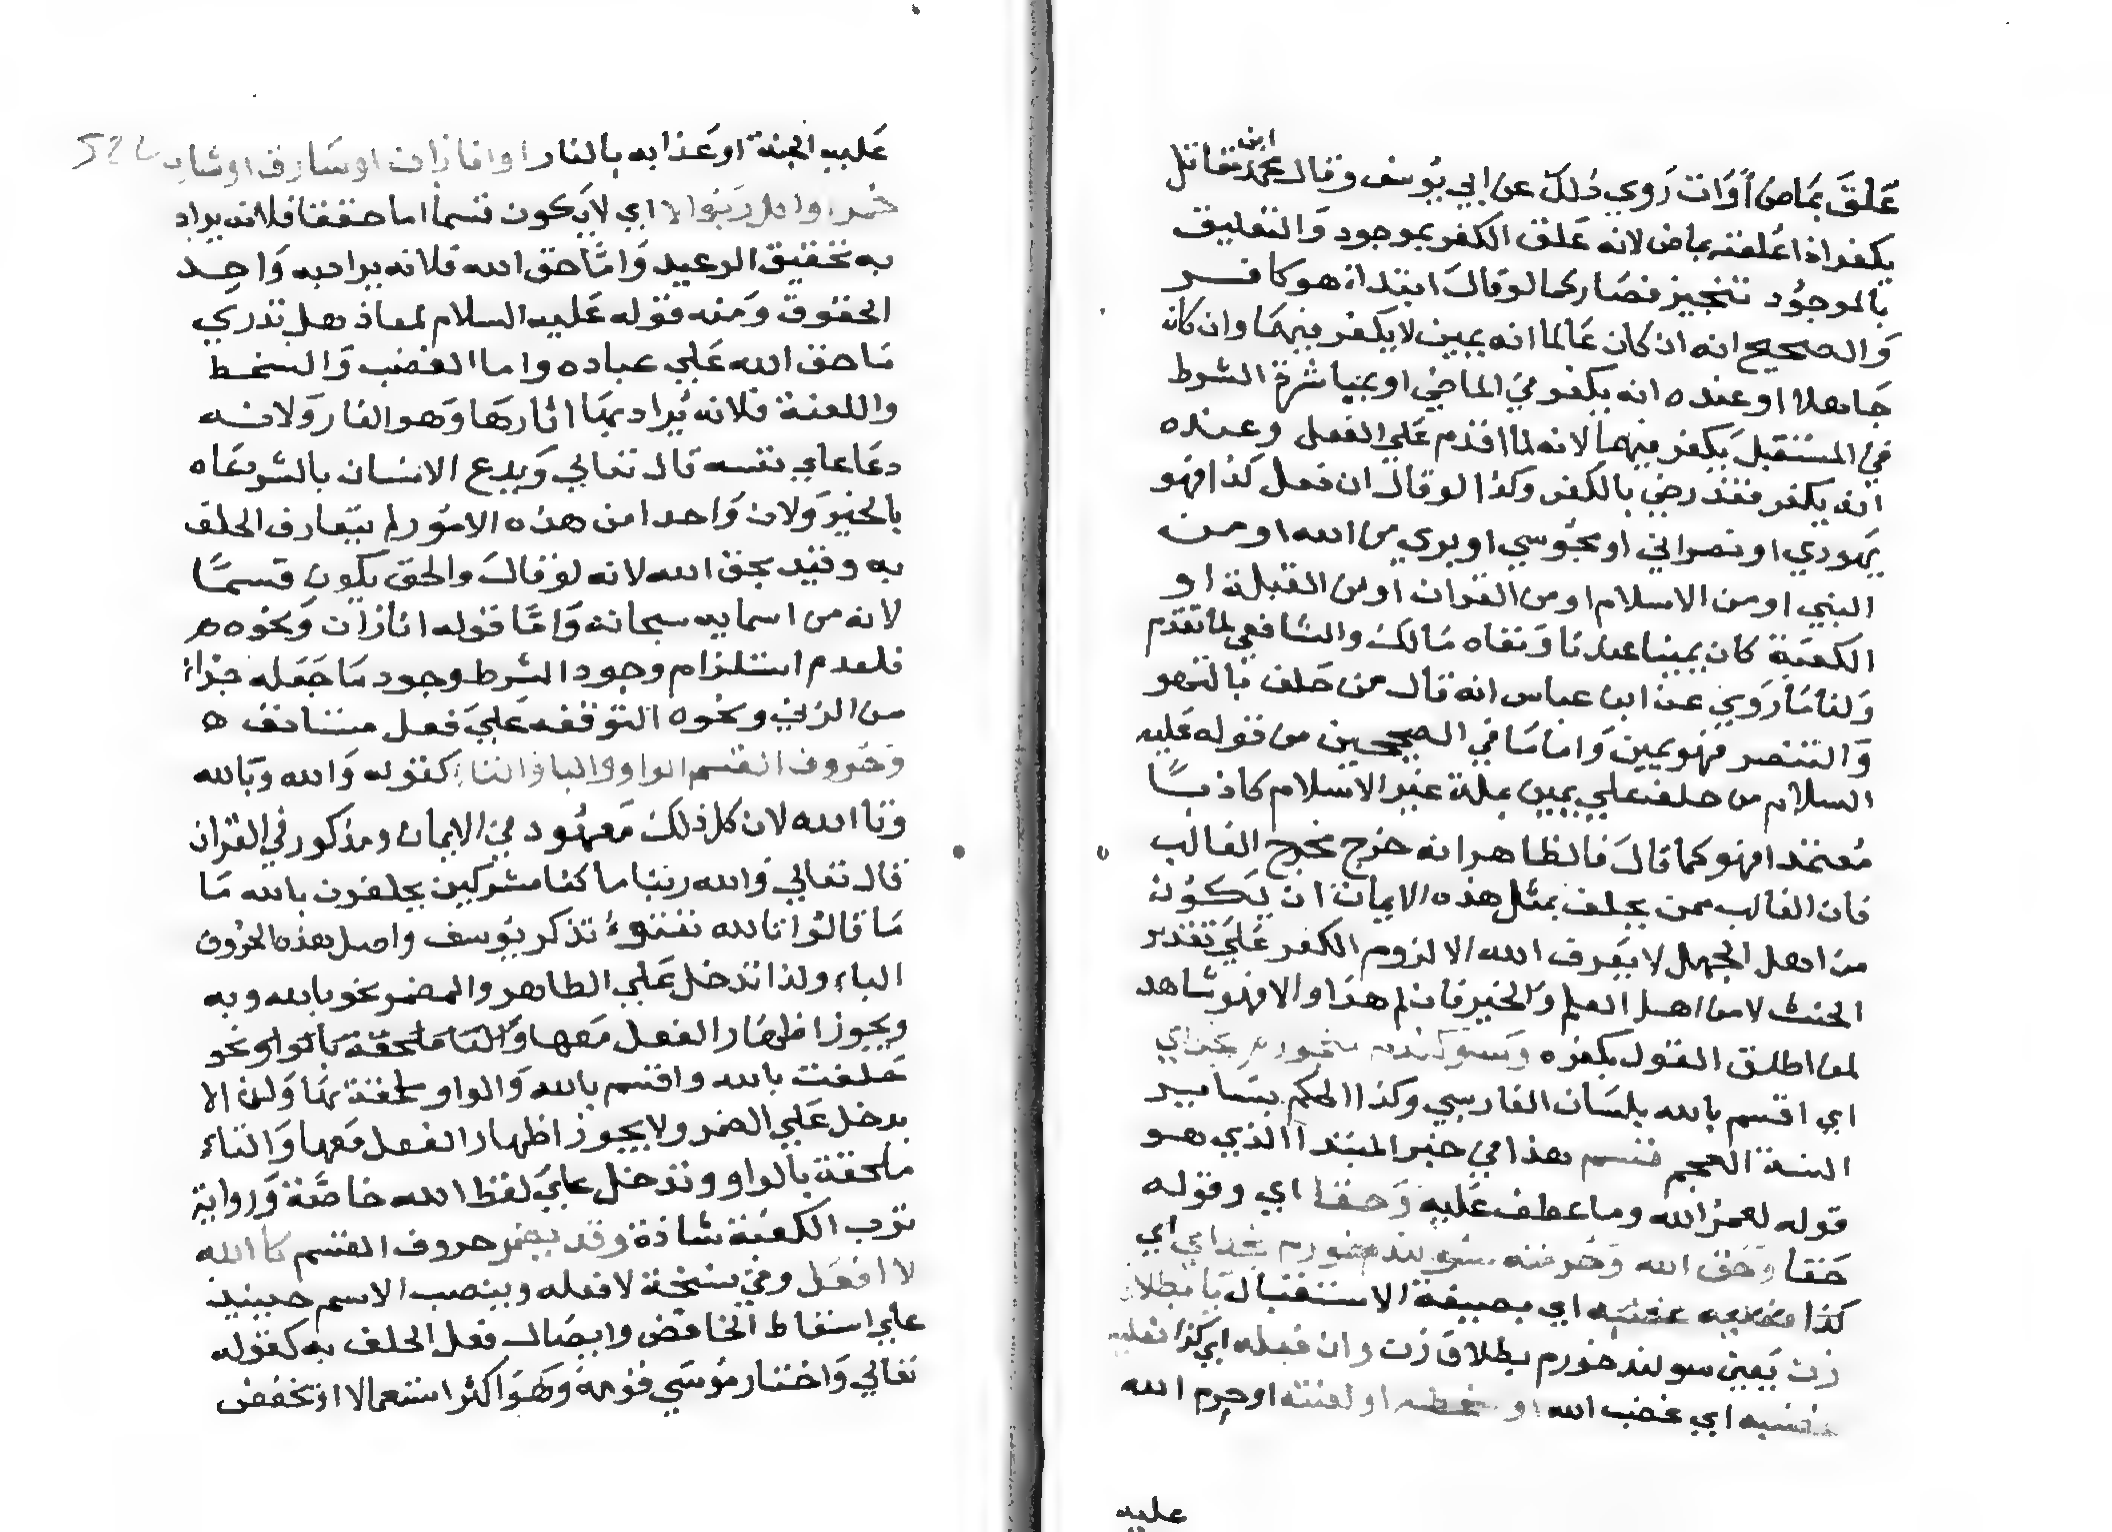 عَلقَ بمَاضٍ اوَات رَوي ذلكَ عن ابي يُوسف وقال محمد ابن مقاتل
يكفر اذا علقه بماض لانه عَلق الكفر بموجود وَالتعليق
بالموجُود تنجيز فصَار كما لو قالَ ابتداء هو كافر
وَالصحيح انه ان كان عَالما انه يمين لا يكفر فيهمَا وان كان
جَاهلا او عنده انه يكفر في الماضي او بمباشرة الشرط
في المستقبل يَكفر فيهما لانه لما اقدم عَلي الفعل وعنده
انه يكفر فقد رضي بالكفر وكذا لو قالَ ان فعل كذا فهو
يهودي او نصراني او مجُوسي او بري من الله او من
النبي او من الاسلام او من القران او من القبلة او
الكعبَة كان يمينا عندنا وَنفاه مَالك والشافعي لما تقدم
وَلنا مَا رَوي عن ابن عباس انه قال من حَلف بالتهو
وَالتنصر فهو يمين وَاما مَا في الصحيحين من قوله عَليه
السلام من حلف علي يمين بملة غير الاسلام كاذبًا
مُعتمدا فهو كما قالَ فالظاهر انه خرج مخرج الغالب
فان الغالب ممن يحلف بمثل هذه الايمان ان يَكوُن
من اهل الجهل لا يعَرف الله الا لزوم الكفر عَليَ تقدير
الحنث لا من اهل العلم وَالخير فان لم هذا والا فهو شاهد
لمن اطلق القول بكفره وَسوكندم خورم بخداي
اي اقسم بالله بلسَان الفارسي وكذا الحكم بسَايير
السنة العجم قسم هذا في خبر المبتدأ الذي هو
قوله لعمرُ الله وما عطف عَليه وَحقا اي وقوله
حَقا وَحَق الله وَحُرمته سُوكند خورم بخداي اي
كذا اي بصيغة الاستقبال يا بطلاق
زن يَعين سوكند خورم بطلاق زن وان فعله اي كذا فعليه
غضبه اي غضب الله او سخطه او لعنته او حرم الله
عليه
عَليه الجنة او عَذابه بالنار او انا زان او سَارق او شارب
خمر او اكل ربَوا لا اي لا يَكون قسما اما حقا فلانه يراد
به تحقيق الوعيد وَامَّا حق الله فلانه يراد به وَاحد
الحقوق وَمنه قوله عَليه السلام لمعاذ هل تدري
مَا حق الله عَلي عباده واما الغضب وَالسخط
واللعنة فلانه يُراد بهَا اثارهَا وَهو النار وَلانه
دعَا علي نفسه قال تعالي وَيدع الانسان بالشر دعَاه
بالخير وَلان وَاحدا من هذه الامُور لم يتعارف الحلف
به وقيد بحق الله لانه لوَ قالَ والحق يَكون قسمًا
لانه من اسمايه سبحانه وَامَّا قوله انا زان وَنحوه
فلعدم استلزام وجود الشرط وجود مَا جَعَله جزاء
من الزني ونحُوه التوقفه عَليَ فعل مستانف ه
وَحُروف القسم الواو والبا والتا كقوله وَالله وَبَالله
وَتا الله لان كل ذلك مَعهُود في الايمان ومذكور في القران
قال تعالي وَالله ربنا ما كنا مشركين يحلفون بالله مَا
مَا قالُوا تالله تفتوءُ تذكر يُوسف واصل هذه الحُروف
الباء ولذا تدخل عَلي الظاهر والمضمر نحو بالله وبه
ويجوز اظهَار الفعل مَعها وَالتا ملحقة بَالواو نحو
حَلفت بالله واقسم بالله وَالواو ملحقة بهَا وَلذ الا
يدخل عَلي المضمر ولا يجوز اظهار الفعل مَعها وَالتاء
ملحقة بالواو وتدخل عليَ لفظ الله خاصَّة وَرواية
تَرب الكعَبَة شاذة وقد يضمر حروف القسم كا الله
لا افعَل وفي نسخة لا فعله وينصب الاسم حينيذ
علي اسقاط الخافض وايصَال فعل الحلف به كقوله
تعالي وَاختار مُوسَي قومَه وَهوَ اكثر استعمالا اذ تخفض